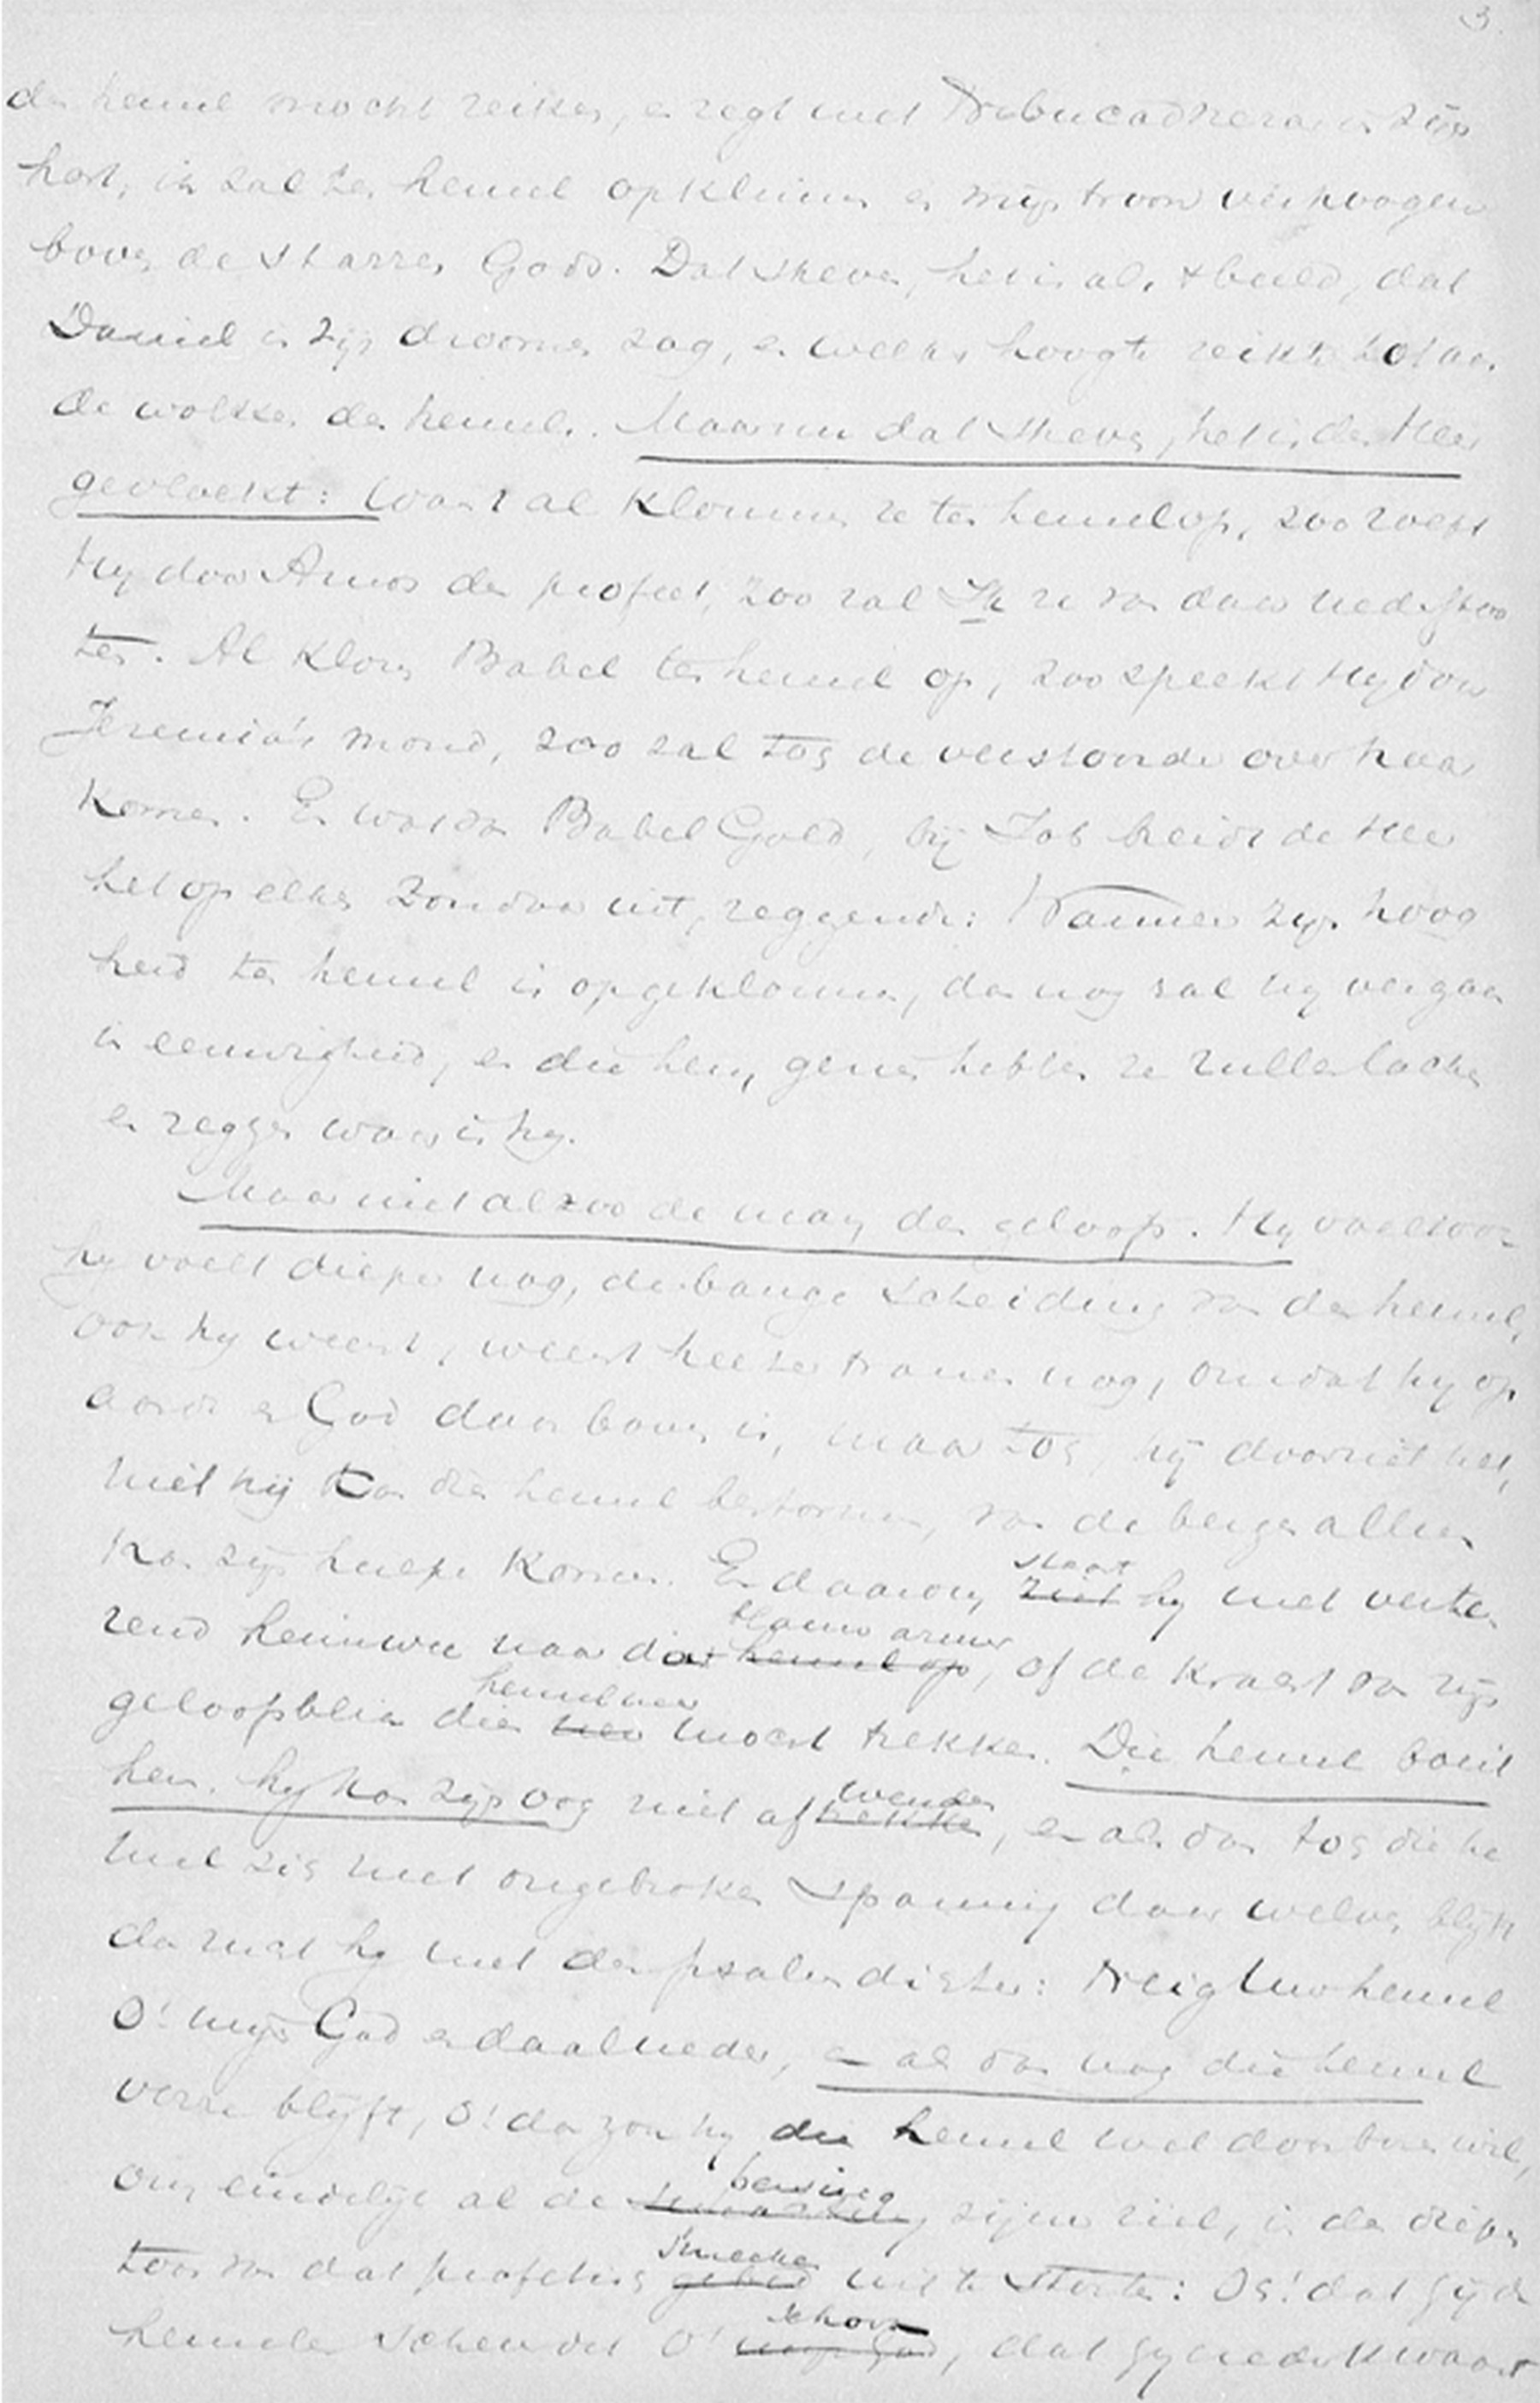 3.
den hemel mocht reiken, en zegt met Nebucadnezar in zijn
hart, ik zal ten hemel opklimmen en mijn troon verhoogen
boven de starren Gods. Dat streven, het is als 't beeld, dat
Daniel in zijn droomen zag, en welks hoogte reikte tot aan
de wolken des hemels. Maar nu dat streven, het is den Heer
gevloekt: Want al klommen ze ten hemel op, zoo roept
Hy door Amos den profeet, zoo zal Ik ze van daar nederstoo
ten. Al klom Babel ten hemel op, zoo spreekt Hy door
Jeremia's mond, zoo zal tog de verstoorder over haar
komen. En wat van Babel Gold, bij Job breidt de Heer
het op elken zondaar uit, zeggende: Wanneer zijn hoog
heid ten hemel is opgeklommen, dan nog zal hy vergaan
in eeuwigheid, en die hem gezien hebben ze zullen lachen
en zeggen waar is hy.
Maar niet alzoo de man des geloofs. Hy voelt ook
hy voelt dieper nog, de bange scheiding van den hemel,
ook hy weent, weent heeter tranen nog, omdat hy op
aarde en God daar boven is, maar tog, hij doorziet het,
niet hij kan dien hemel bestormen, van de bergen alleen
kan zijn hulpe komen. En daarom staat ziet hy met verte-
rend heimwee naar dat blauw azuur hemel op, of de kracht van zijn
geloofsblik dien hemel neer neer mocht trekken. Die hemel boeit
hem. hy kan zijn oog niet af wenden trekken, en als dan tog die he
mel zig met ongebroken spanning daar welven blijft
dan smeekt hy met den psalmdichter: Neig Uw hemel
O! mijn God en daal neder, en als dan nog die hemel
verre blijft, O! dan zou hy die hemel wel doorboren willen,
om eindelijk al de persing zijner ziel, in den diepen
toon van dat profetisch smeeken gebed uit te storten: Og! dat Gij de
hemelen scheurdet O! Jehova mijn God, dat Gy nederkwaamt